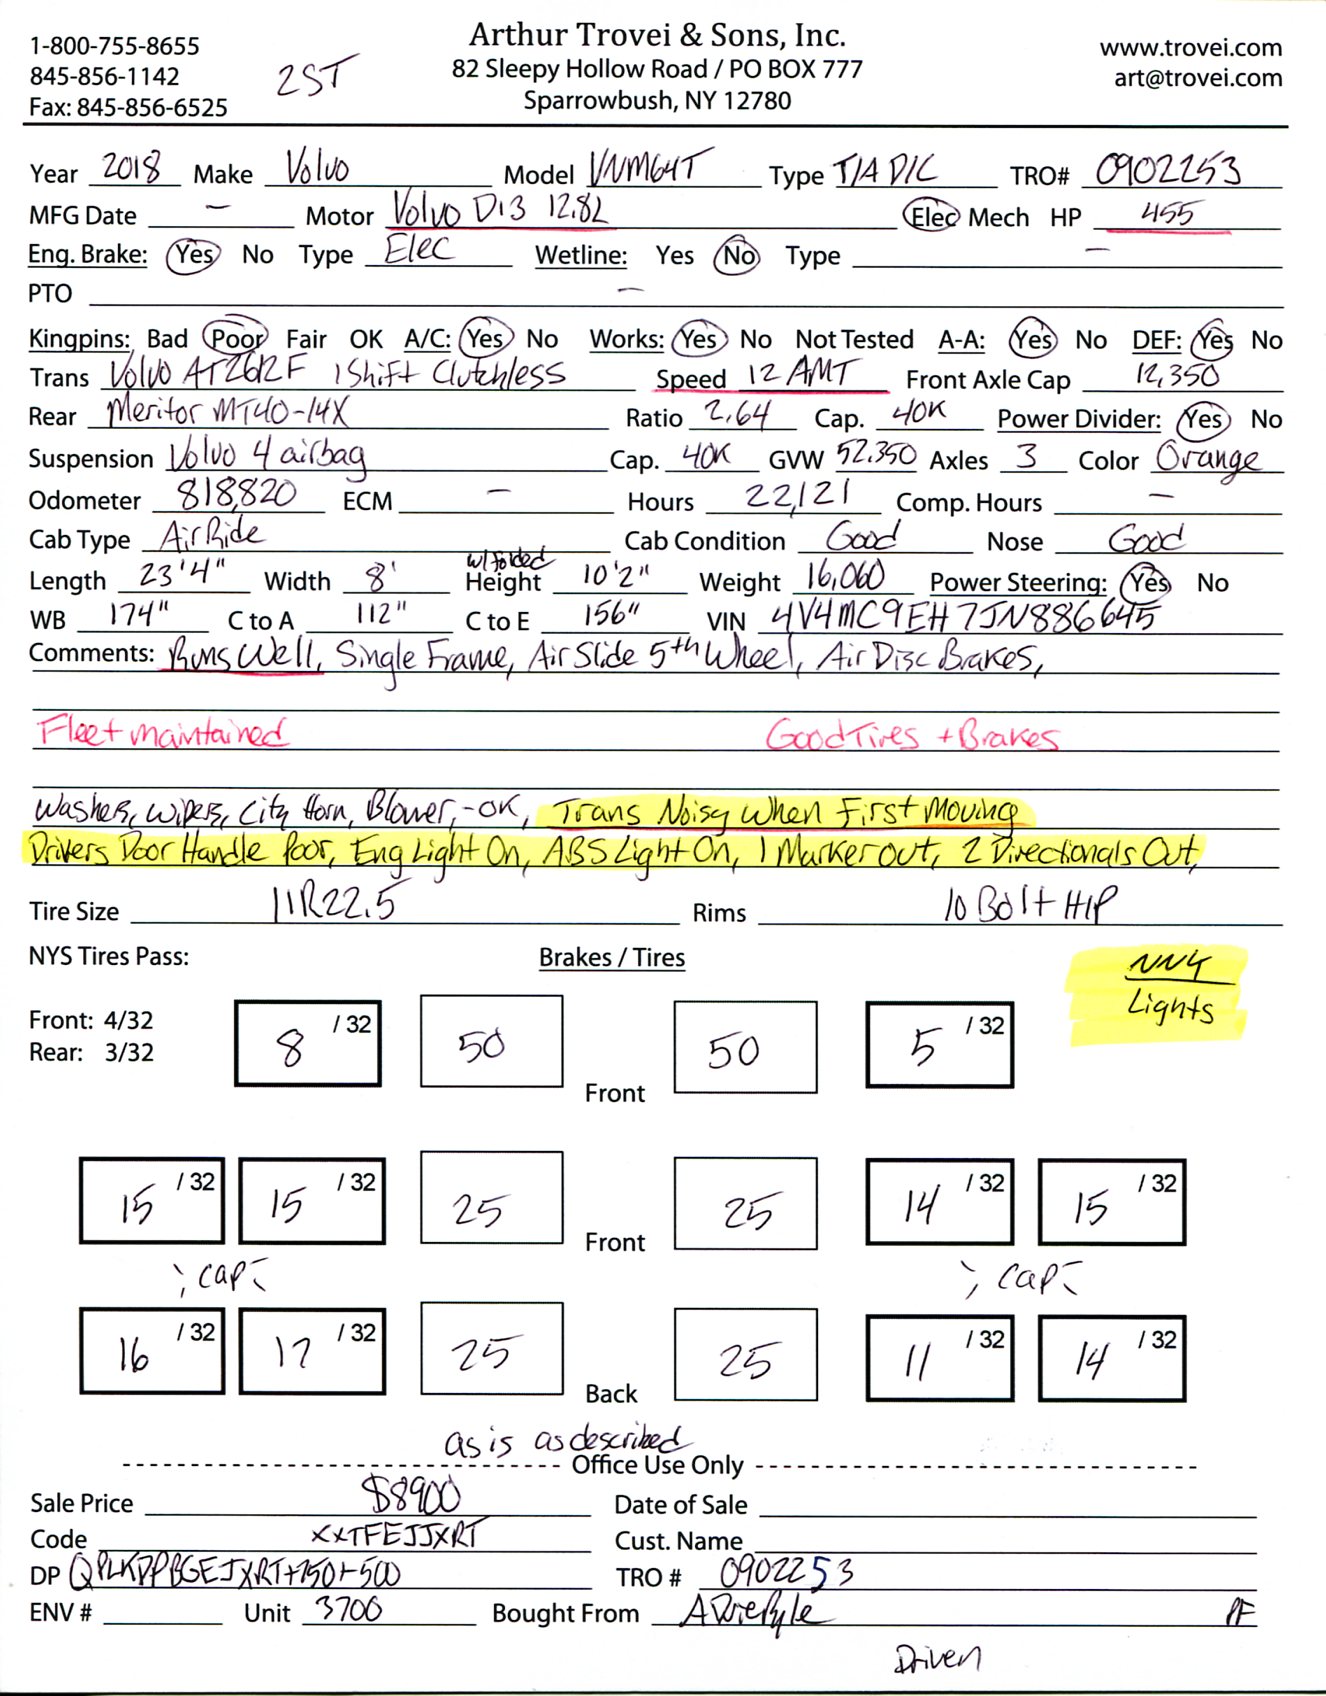 Arthur Trovei & Sons, Inc.
1-800-755-8655 www.trovei.com
82 Sleepy Hollow Road / PO BOX 777
845-856-1142 2ST art@trovei.com
Fax: 845-856-6525 Sparrowbush, NY 12780
Year 2018 Make Volvo Model VNM64T Type T/A D/C TRO# 0902253
MFG Date – Motor Volvo D13 12.8L Elec Mech HP 455
Eng. Brake: Yes No Type Elec Wetline: Yes No Type –
PTO –
Kingpins: Bad Poor Fair OK A/C: Yes No Works: Yes No Not Tested A-A: Yes No DEF: Yes No
Trans Volvo AT2612F 1 Shift Clutchless Speed 12 AMT Front Axle Cap 12,350
Rear Meritor MT40-14X Ratio 2.64 Cap. 40K Power Divider: Yes No
Suspension Volvo 4 airbag Cap. 40K GVW 52,350 Axles 3 Color Orange
Odometer 818,820 ECM – Hours 22,121 Comp. Hours –
Cab Type Air Ride Cab Condition Good Nose Good
w/ folded
Length 23'4" Width 8' Height 10'2" Weight 16,060 Power Steering: Yes No
WB 174" C to A 112" C to E 156" VIN 4V4MC9EH7JN886645
Comments: Runs Well, Single Frame, Air Slide 5th Wheel, Air Disc Brakes,
Fleet maintained Good Tires + Brakes
Washers, Wipers, City Horn, Blower,-OK, Trans Noisy When First Moving
Drivers Door Handle Poor, Eng Light On, ABS Light On, 1 Marker out, 2 Directionals Out,
Tire Size 11R22.5 Rims 10 Bolt HP
NYS Tires Pass: Brakes / Tires NNY
Lights
Front: 4/32
Rear: 3/32
8 /32 50 50 5 /32
Front
15 /32 15 /32 25 25 14 /32 15 /32
Front
cap cap
16 /32 17 /32 25 25 11 /32 14 /32
Back
as is as described
Office Use Only
Sale Price $8900 Date of Sale
Code XXTFEJJXRT Cust. Name
DP QPLKPPBGEJXRT+750+500 TRO # 0902253
ENV # Unit 3700 Bought From PF
Driven